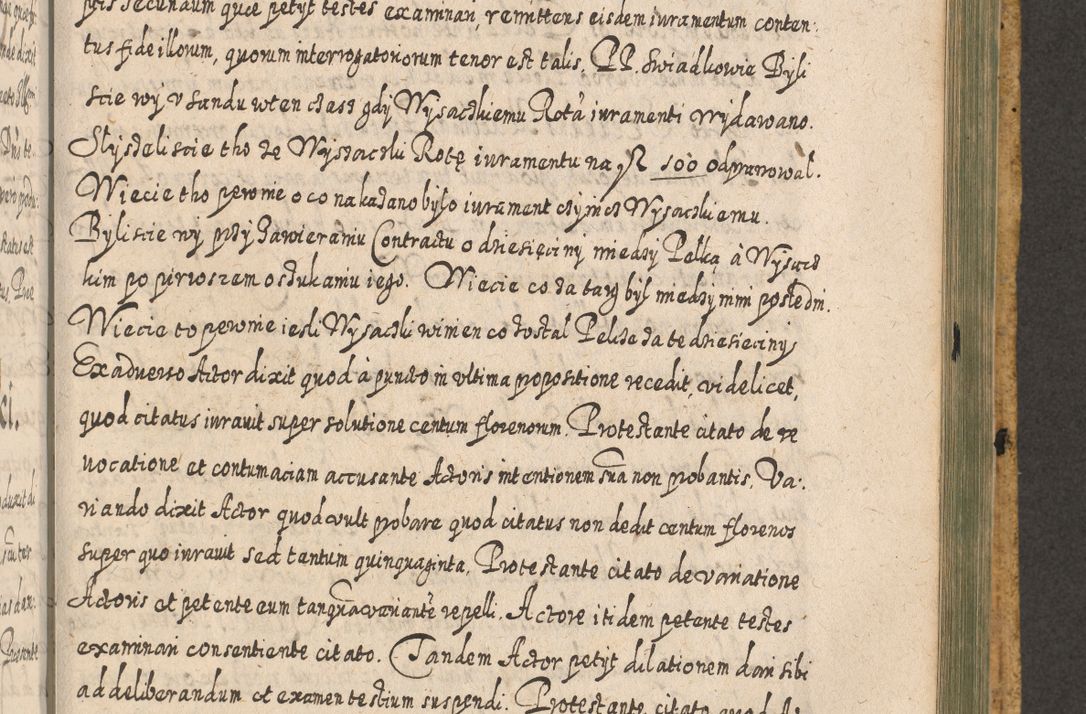 ptis secundum quæ petyt testes examinari, remittens eisdem iuramentum conten-
tus fide illorum, quorum interrogatoriorum tenor est talis. PP. Swiadkowie Byli
scie wy v sandu wten czass gdy Wysaczkiemu Rotá iuramenti wydawano.
Slyszeli scie tho ze Wysoaczki Rotę iuramentu na 100 odprawowal.
Wiecie tho pewnie o co nakazano bylo iurament czynicz Wysaczkiemu.
Byli scie wy przy Zawieraniu Contractu o dziesięciny miedzy Pelką à Wysacz
kim po pirwszem oszukaniu iego. Wiecie co za targ był miedzy nimi posledni.
Wiecie to pewnie iesli Wysaczki winien co zostal Pelcze za te dziesieciny
Ex adverso Actor dixit quod à puncto in vltima propositione recedit, videlicet,
quod citatus iurauit super solutione centum florenorum. Protestante citato de re
uocatione et contumaciam accusante Actoris intentionem sua non probantis. Va-
riando dixit Actor quod vult probare quod citatus non dedit centum florenos
super quo iurauit sed tantum quinquaginta. Protestante citato de variatione
Actoris et petente eum tanquam variantē repelli. Actore itidem petente testes
examinari consentiente citato. Tandem Actor petyt dilationem dari sibi
ad deliberandum et examen testium suspendi. Protestante citato quod Ac